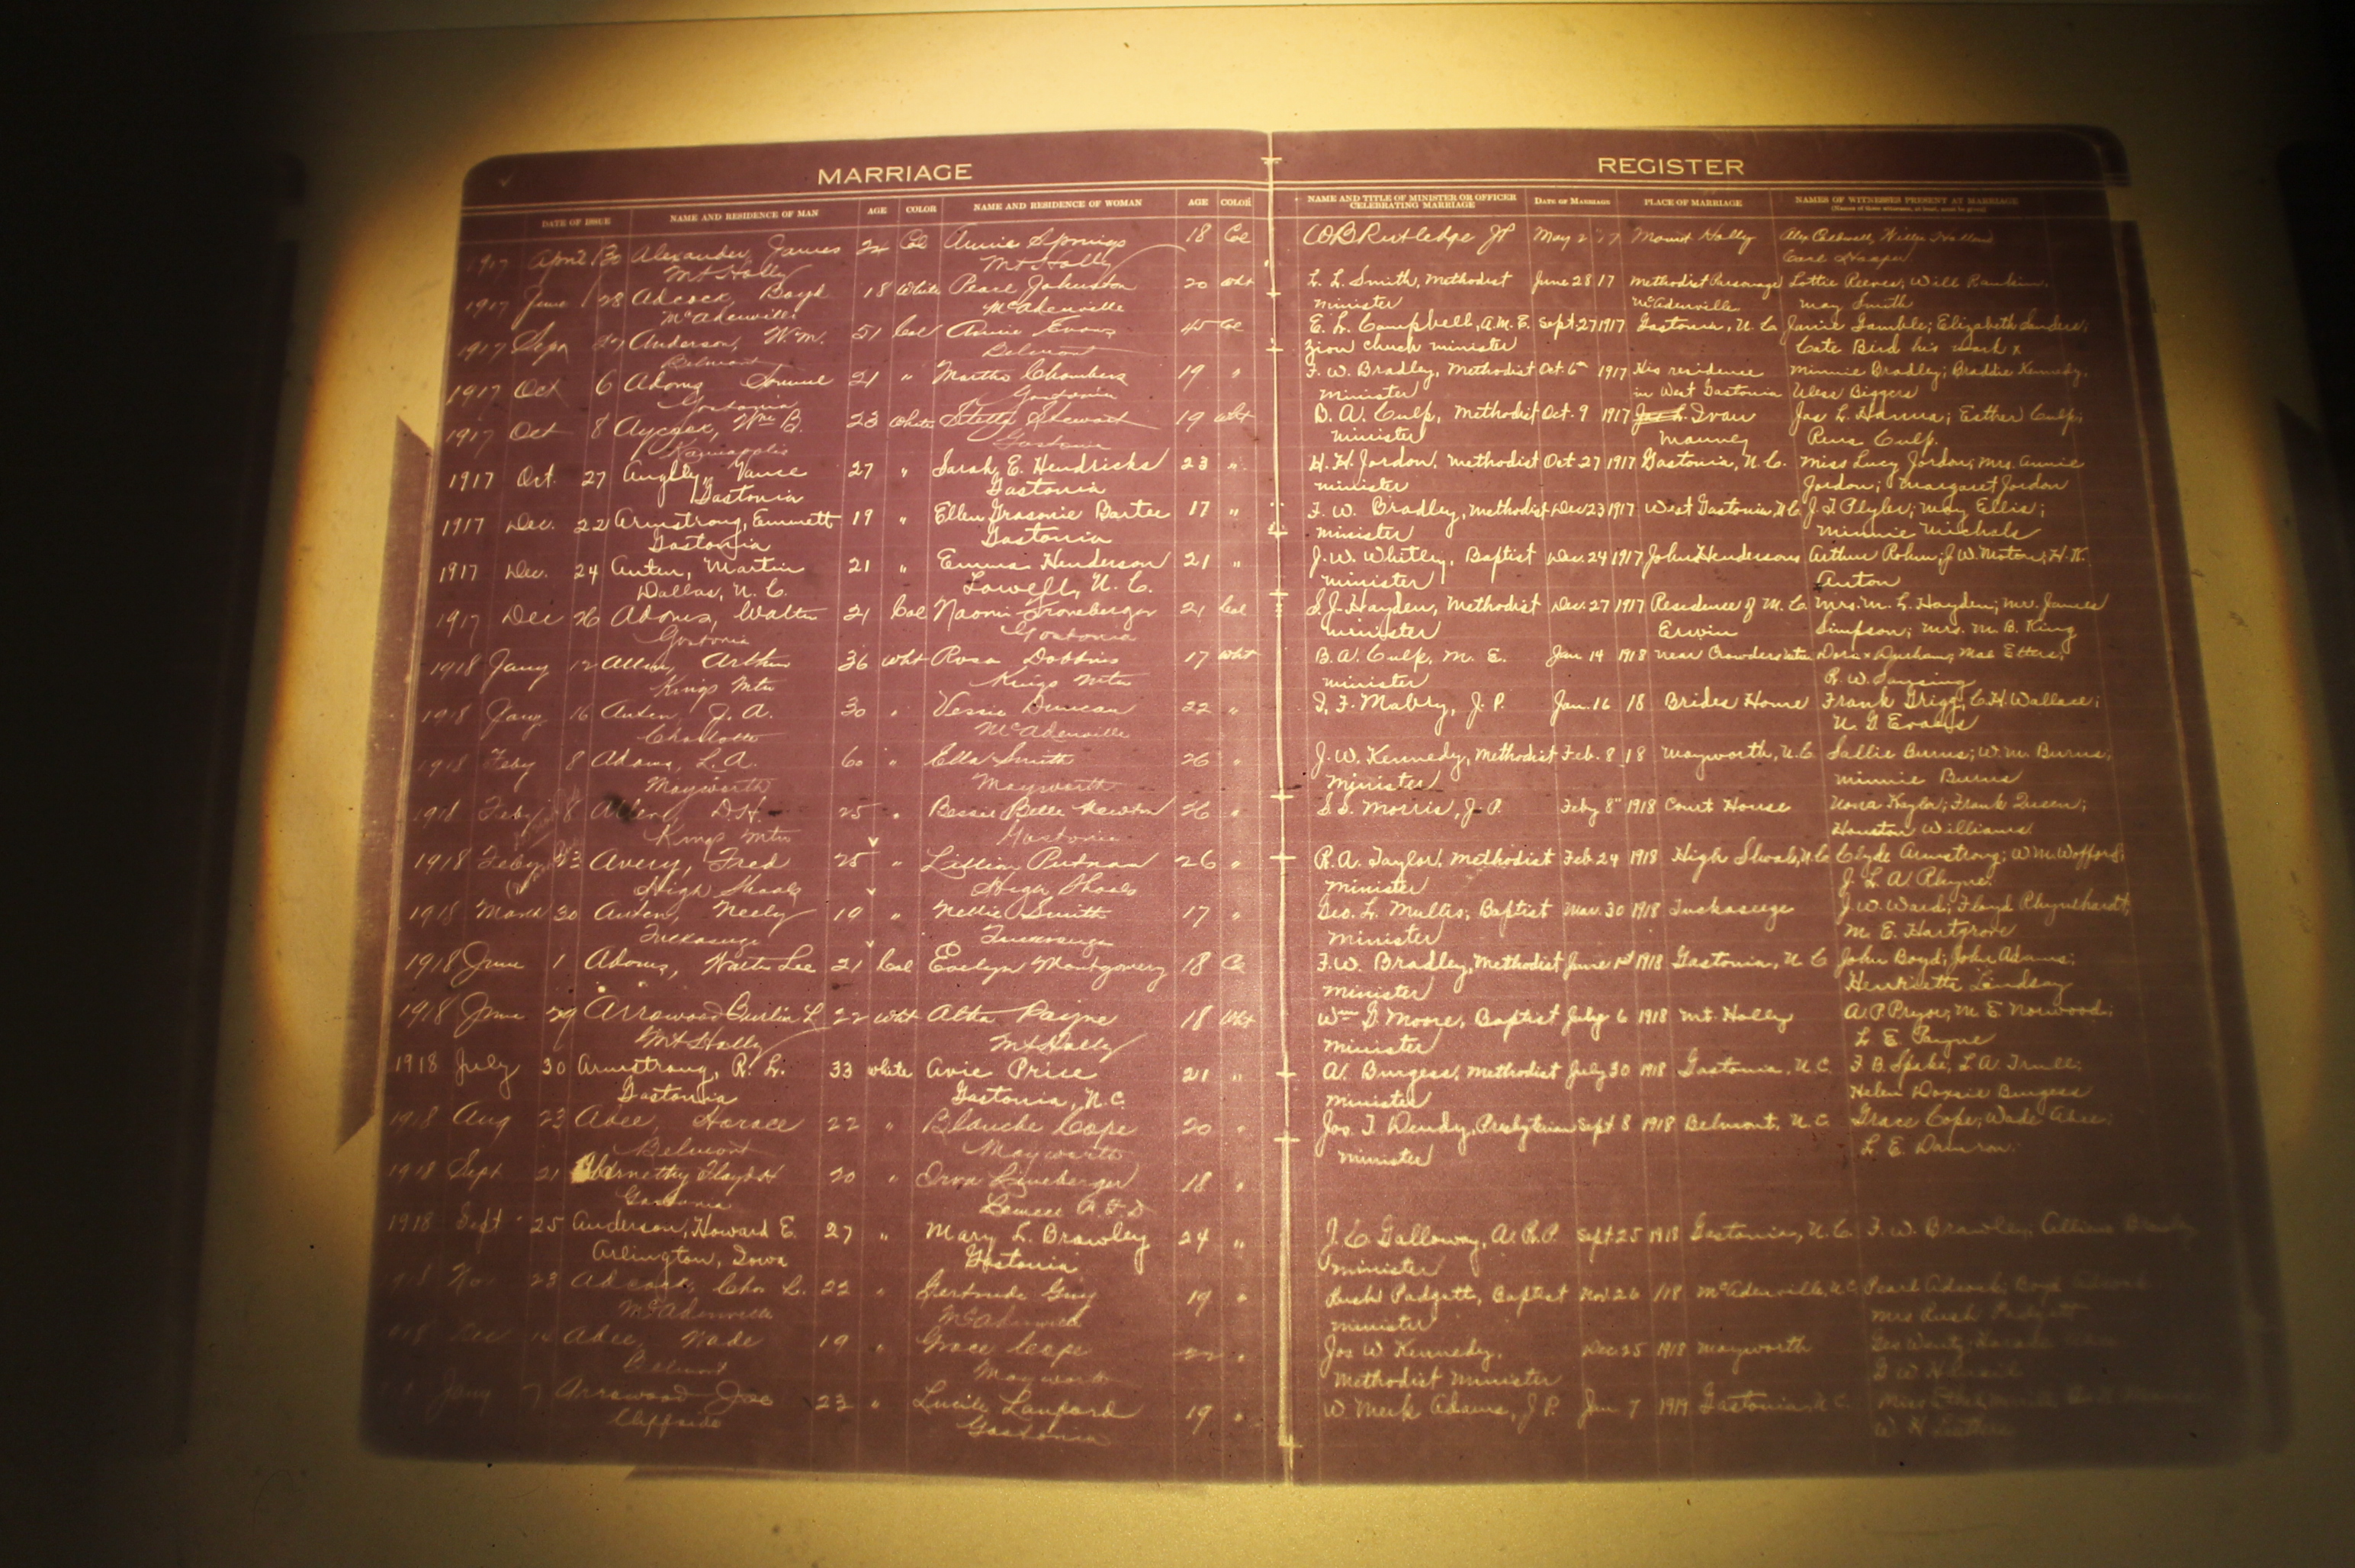 MARRIAGE REGISTER
DATE OF ISSUE NAME AND RESIDENCE OF MAN AGE COLOR NAME AND RESIDENCE OF WOMAN AGE COLOR NAME AND TITLE OF MINISTER OR OFFICER CELEBRATING MARRIAGE DATE OF MARRIAGE PLACE OF MARRIAGE NAMES OF WITNESSES PRESENT AT MARRIAGE
1917 April 30 Alexander, James 22 Col Annie Springs 18 Col W B Rutledge JP May 2 17 Mount Holly Alex Caldwell, Willie Holland
Mt Holly Mt Holly Carl Hooper
1917 June 28 Adcock, Boyd 18 White Pearl Johnson 20 Wht L. L. Smith, Methodist June 28 17 Methodist Parsonage Lottie Reeves; Will Rankin.
McAdenville McAdenville minister McAdenville May Smith
1917 Sept 27 Anderson, W.M. 51 Col Annie Evans 45 Col E. L. Campbell, A.M.E. Sept. 27 1917 Gastonia, N. C. Janie Gamble; Elizabeth Sanders;
Belmont Belmont Zion church minister Cate Bird his mark x
1917 Oct 6 Adams 21 " Martha Chambers 19 " F. W. Bradley, Methodist Oct. 6th 1917 His residence Minnie Bradley; Braddie Kennedy,
Gastonia Gastonia minister in West Gastonia Biggers
1917 Oct 8 Aycock, Wm B. 23 White Stella Stewart 19 Wht B. A. Culp, Methodist Oct. 9 1917 Ivan Jas L. Hanna; Esther Culp;
Kannapolis Gastonia minister Mauney Rena Culp.
1917 Oct. 27 Vance 27 " Sarah E. Hendricks 23 " H. H. Jordon, Methodist Oct 27 1917 Gastonia, N. C. Miss Lucy Jordon; Mrs. Annie
Gastonia Gastonia minister Jordon; Margaret Jordon
1917 Dec. 22 Armstrong, Emmett 19 " Ellen Bartee 17 " F. W. Bradley, Methodist Dec 23 1917 West Gastonia, N C J. T Plyler; May Ellis;
Gastonia Gastonia minister Minnie Michals
1917 Dec. 24 Auten, Martin 21 " Emma Henderson 21 " J. W. Whitley, Baptist Dec. 24 1917 John Hendersons Arthur Rohm; J W. Moton; H. K.
Dallas, N. C. Lowell, N. C. minister Auton
1917 Dec 26 Adams, Walter 21 Col Naomi Froneberger 21 Col S. J. Hayden, Methodist Dec. 27 1917 Residence of M. C. Mrs. M. L. Hayden; Mr. James
Gastonia Gastonia minister Erwin Simpson; Mrs. M. B. King
1918 Jany 12 Allen, Arthur 36 Wht Rosa Dobbins 17 Wht B. A. Culp, M. E. Jan 14 1918 near Crowders Dora x Durham; Mae Etters;
Kings Mtn Kings Mtn minister R. W. Sansing
1918 Jany 16 Auten, J. A. 30 " Vessie Duncan 22 " I. F. Mabry, J. P. Jan. 16 18 Brides Home Frank Grigg; C. H. Wallace;
Charlotte McAdenville N. G Evans
1918 Feby 8 Adams, L. A. 60 " Ella Smith 26 " J. W. Kennedy, Methodist Feb. 8 18 Mayworth, N. C Sallie Burns; W. M. Burns;
Mayworth Mayworth Minister Minnie Burns
1918 Feby 8 D. H. 25 " Bessie Belle Newton 26 " S. S. Morris, J. P. Feby 8" 1918 Court House Nona Kaylor; Frank Queen;
Kings Mtn Gastonia Houston Williams
1918 Feby 23 Avery, Fred 25 " Lillian Putnam 26 " R. A. Taylor, Methodist Feb. 24 1918 High Shoals, N C Clyde Armstrong; W M. Wofford;
High Shoals High Shoals minister J. L. A. Rhyne.
1918 March 30 Auten, Neely 19 " Nellie Smith 17 " Geo. L. Mullis, Baptist Mar. 30 1918 Tuckaseuge J. W. Ward; Floyd Rhynehardt;
Tuckaseuge Tuckaseuge Minister M. E. Hartgrove
1918 June 1 Adams, Walter Lee 21 Col Evelyn Montgomery 18 Co F. W. Bradley, Methodist June 1st 1918 Gastonia, N C John Boyd; John Adams;
minister Henrietta Lindsay
1918 June 29 Arrowood 22 Wht Altha Payne 18 Wht Wm G. Moore, Baptist July 6 1918 Mt. Holly A. P. Pryor; M. E Norwood;
Mt Holly Mt Holly minister L. E. Payne
1918 July 30 Armstrong, R. L. 33 White Avie Price 21 " A. Burgess, Methodist July 30 1918 Gastonia, N. C. F. B. Spake; L. A. Trull;
Gastonia Gastonia, N. C. minister Helen Burgess
1918 Aug 23 Abee, Horace 22 " Blanche Cope 20 " Jos. T. Dendy, Presbyterian Sept 8 1918 Belmont, N. C. Grace Cope; Wade Abee;
Belmont Mayworth minister L. E. Damron.
1918 Sept 21 Abernethy Floyd H 20 " Orva Lineberger 18 "
Gastonia Lowell
1918 Sept 25 Anderson, Howard E. 27 " Mary L. Brawley 24 " J. C. Galloway, A. R. P. Sept. 25 1918 Gastonia, N. C. F. W. Brawley;
Arlington, Iowa Gastonia minister
Nov 23 Adcock, Chas L. 22 " Gertrude Guy 19 " Rush Padgett, Baptist Nov. 26 /18 McAdenville, N C Pearl Adcock; Boyd
McAdenville McAdenville minister Mrs Rush Padgett
Dec 14 Abee, Wade 19 " Grace Cope 22 " Jos W. Kennedy, Dec 25 1918 Mayworth
Belmont Mayworth Methodist Minister
Jany 7 Arrowood Joe 23 " Lucile Lanford 19 " W. Meek Adams, J. P. Jan 7 1919 Gastonia, N. C.
Cliffside Gastonia